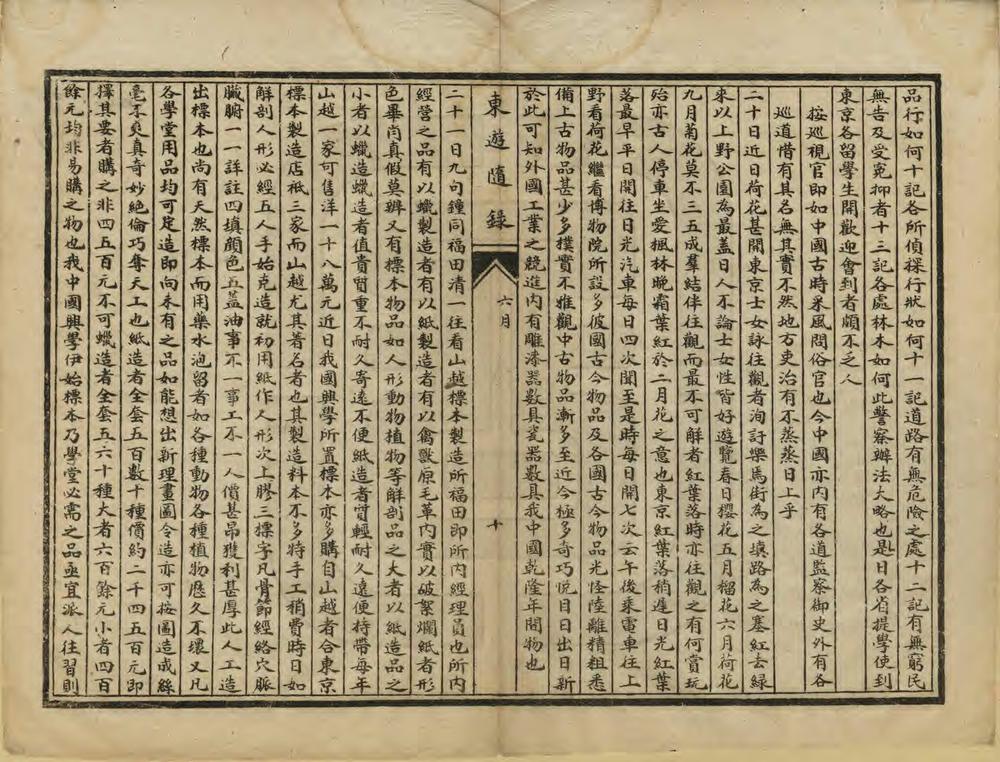 品行如何十記各所偵探行狀如何十一記道路有無危險之處十二記有無窮民
無告及受冤抑者十三記各處林木如何此警察辦法大略也是日各省提學使到
東京各留學生開歡迎會到者頗不乏人
按巡視官即如中國古時采風問俗官也今中國亦内有各道監察御史外有各
巡道惜有其名無其實不然地方吏治有不蒸蒸日上乎
二十日近日荷花甚開東京士女詠往觀者洵訏樂馬街為之填路為之塞紅去綠
來以上野公園為最蓋日人不論士女性皆好遊覽春日櫻花五月榴花六月荷花
九月菊花莫不三五成羣結伴往觀而最不可解者紅葉落時亦往觀之有何賞玩
殆亦古人停車坐愛楓林晚霜葉紅於二月花之意也東京紅葉落稍遲日光紅葉
落最早平日開往日光汽車每日四次聞至是時每日開七次云午後乘電車往上
野看荷花繼看博物院所設多彼國古今物品及各國古今物品光怪陸離精粗悉
備上古物品甚少多樸實不雅觀中古物品漸多至近今極多奇巧悦目日出日新
於此可知外國工業之競進内有雕漆器數具瓷器數具我中國乾隆年間物也
東遊隨錄
六月
十
二十一日九句鐘同福田清一往看山越標本製造所福田即所内經理員也所内
經營之品有以蠟製造者有以紙製造者有以禽獸原毛革内實以破絮爛紙者形
色畢肖真假莫辨又有標本物品如人形動物植物等解剖品之大者以紙造品之
小者以蠟造蠟造者值貴質重不耐久寄遠不便紙造者質輕耐久遠便持帶每年
山越一家可售洋一十八萬元近日我國興學所置標本亦多購自山越者合東京
標本製造店祇三家而山越尤其著名者也其製造料本不多特手工稍費時日如
解剖人形必經五人手始克造就初用紙作人形次上膠三標字凡骨節經絡穴脈
臟腑一一詳註四填顔色五蓋油事不一事工不一人價甚昂獲利甚厚此人工造
出標本也尚有天然標本而用藥水泡留者如各種動物各種植物歷久不壞又凡
各學堂用品均可定造即向未有之品如能想出新理畫圖令造亦可按圖造成絲
毫不爽真奇妙絕倫巧奪天工也紙造者全套五百數十種價約二千四五百元即
擇其要者購之非四五百元不可蠟造者全套五六十種大者六百餘元小者四百
餘元均非易購之物也我中國興學伊始標本乃學堂必需之品亟宜派人往習則